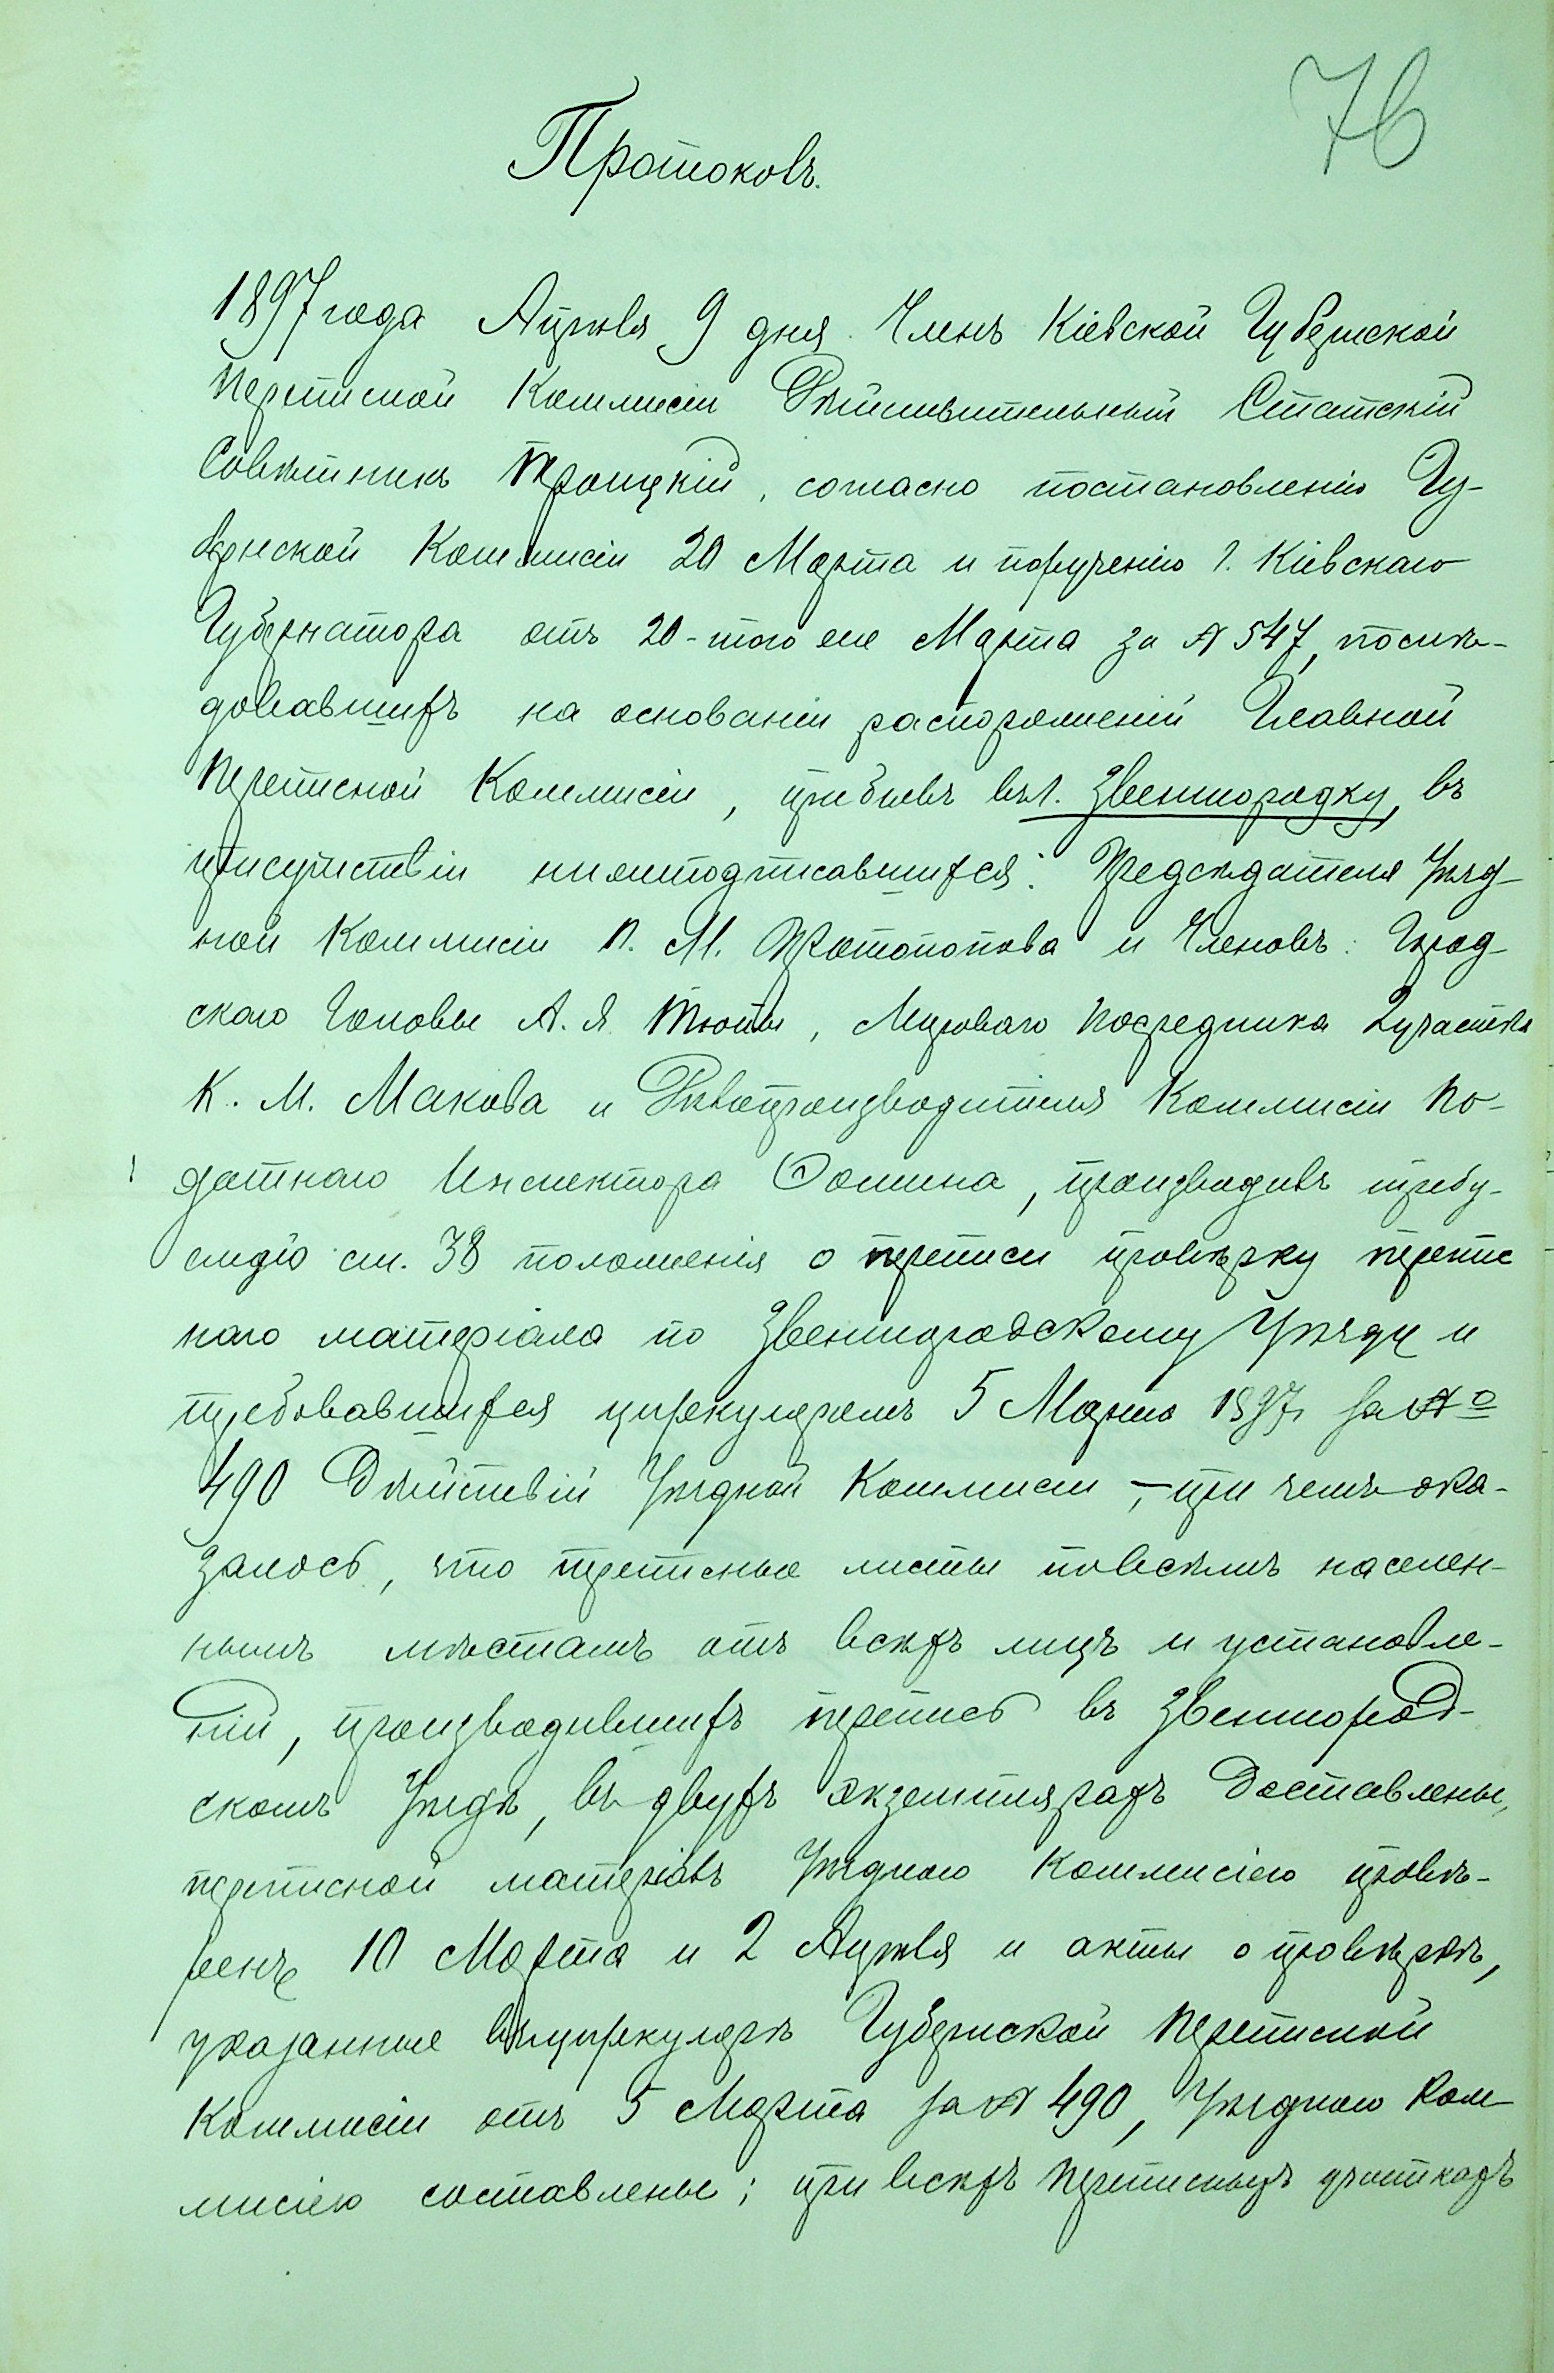 76
Протоколъ.
1897 года Апрѣля 9 дня. Членъ Кіевской Губернской
Переписной Коммисіи Дѣйствительный Статскій
Совѣтникъ Троицкій, согласно постановленію Гу-
бернской Коммисіи 20 Марта и порученію Г. Кіевскаго
Губернатора отъ 20-того же Марта за № 547, послѣ-
довавшихъ на основаніи распоряженій Главной
Переписной Коммисіи, прибывъ въ г. Звенигородку, въ
присутствіи нижеподписавшихся: Предсѣдателя Уѣзд-
ной Коммисіи П. М. Протопопова и Членовъ: Город-
скаго Головы А. Я. Тюпы, Мирового Посредника 2 участка
К. М. Макова и Дѣлопроизводителя Коммисіи По-
датного Инспектора Фомина, производилъ требу-
емую ст. 38 положенія о переписи провѣрку перепис
наго матеріала по Звенигородскому Уѣзду и
требовавшихся циркуляромъ 5 Марта 1897 за №
490 Дѣйствій Уѣздной Коммисіи, – при чемъ ока-
залось, что переписные листы по всѣмъ населен-
нымъ мѣстамъ отъ всѣхъ лицъ и установле-
ній, производившихъ перепись въ Звенигород-
скомъ Уѣздѣ, въ двухъ экземплярахъ доставлены,
переписной матеріалъ Уѣздною Коммисіею провѣ-
ренъ 10 Марта и 2 Апрѣля и акты о провѣркѣ,
указанные въ циркулярѣ Губернской Переписной
Коммисіи отъ 5 Марта за № 490, Уѣздною Ком
мисіею составлены; при всѣхъ переписныхъ участкахъ